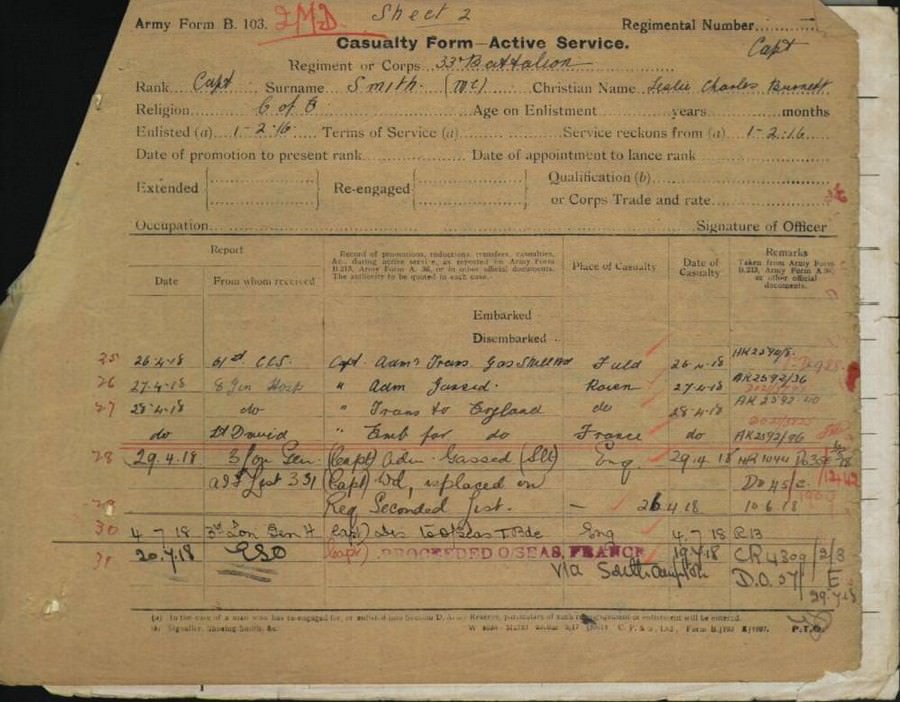 Army Form B. 103. 2MD Sheet 2 Regimental Number
Casualty Form—Active Service. Capt
Regiment or Corps 33rd Battalion
Rank Capt Surname Smith (MC) Christian Name Leslie Charles Burnett
Religion C of E Age on Enlistment years months
Enlisted (a) 1-2-16 Terms of Service (a) Service reckons from (a) 1-2-16
Date of promotion to present rank Date of appointment to lance rank
Extended Re-engaged Qualification (b)
or Corps Trade and rate
Occupation Signature of Officer
Report
Date From whom received
Record of promotions, reductions, transfers, casualties,
&c., during active service, as reported on Army Form
B.213, Army Form A. 36, or in other official documents.
The authority to be quoted in each case.
Place of Casualty
Date of
Casualty
Remarks
Taken from Army Form
B.213, Army Form A.36,
or other official
documents.
Embarked
Disembarked
25 26-4-18 61st CCS. Capt. Adm & Trans. Gas Shell Wd Field 26-4-18
26 27-4-18 8 Gen Hosp " Adm Gassed. Rouen 27-4-18 AK2592/36
27 28-4-18 do " Trans to England do 28-4-18 AK2592
do St David " Emb for do France do AK2592/96
28 29.4.18 3 Lon Gen. (Capt) Adm. Gassed (Slt) Eng. 29.4.18
AIF List 331 (Capt) Wd, is placed on Do 45
29 Reg Seconded List. — 26.4.18 10.6.18
30 4 7 18 3rd Lon Gen H (Capt) Dis to O/Seas T. Bde Eng 4.7.18 R13
31 20.7.18 GSO (Capt) PROCEEDED O/SEAS, FRANCE 19.7.18 CR4309/2/8
Via Southampton D.O. 57/E
29.7.18
P.T.O.